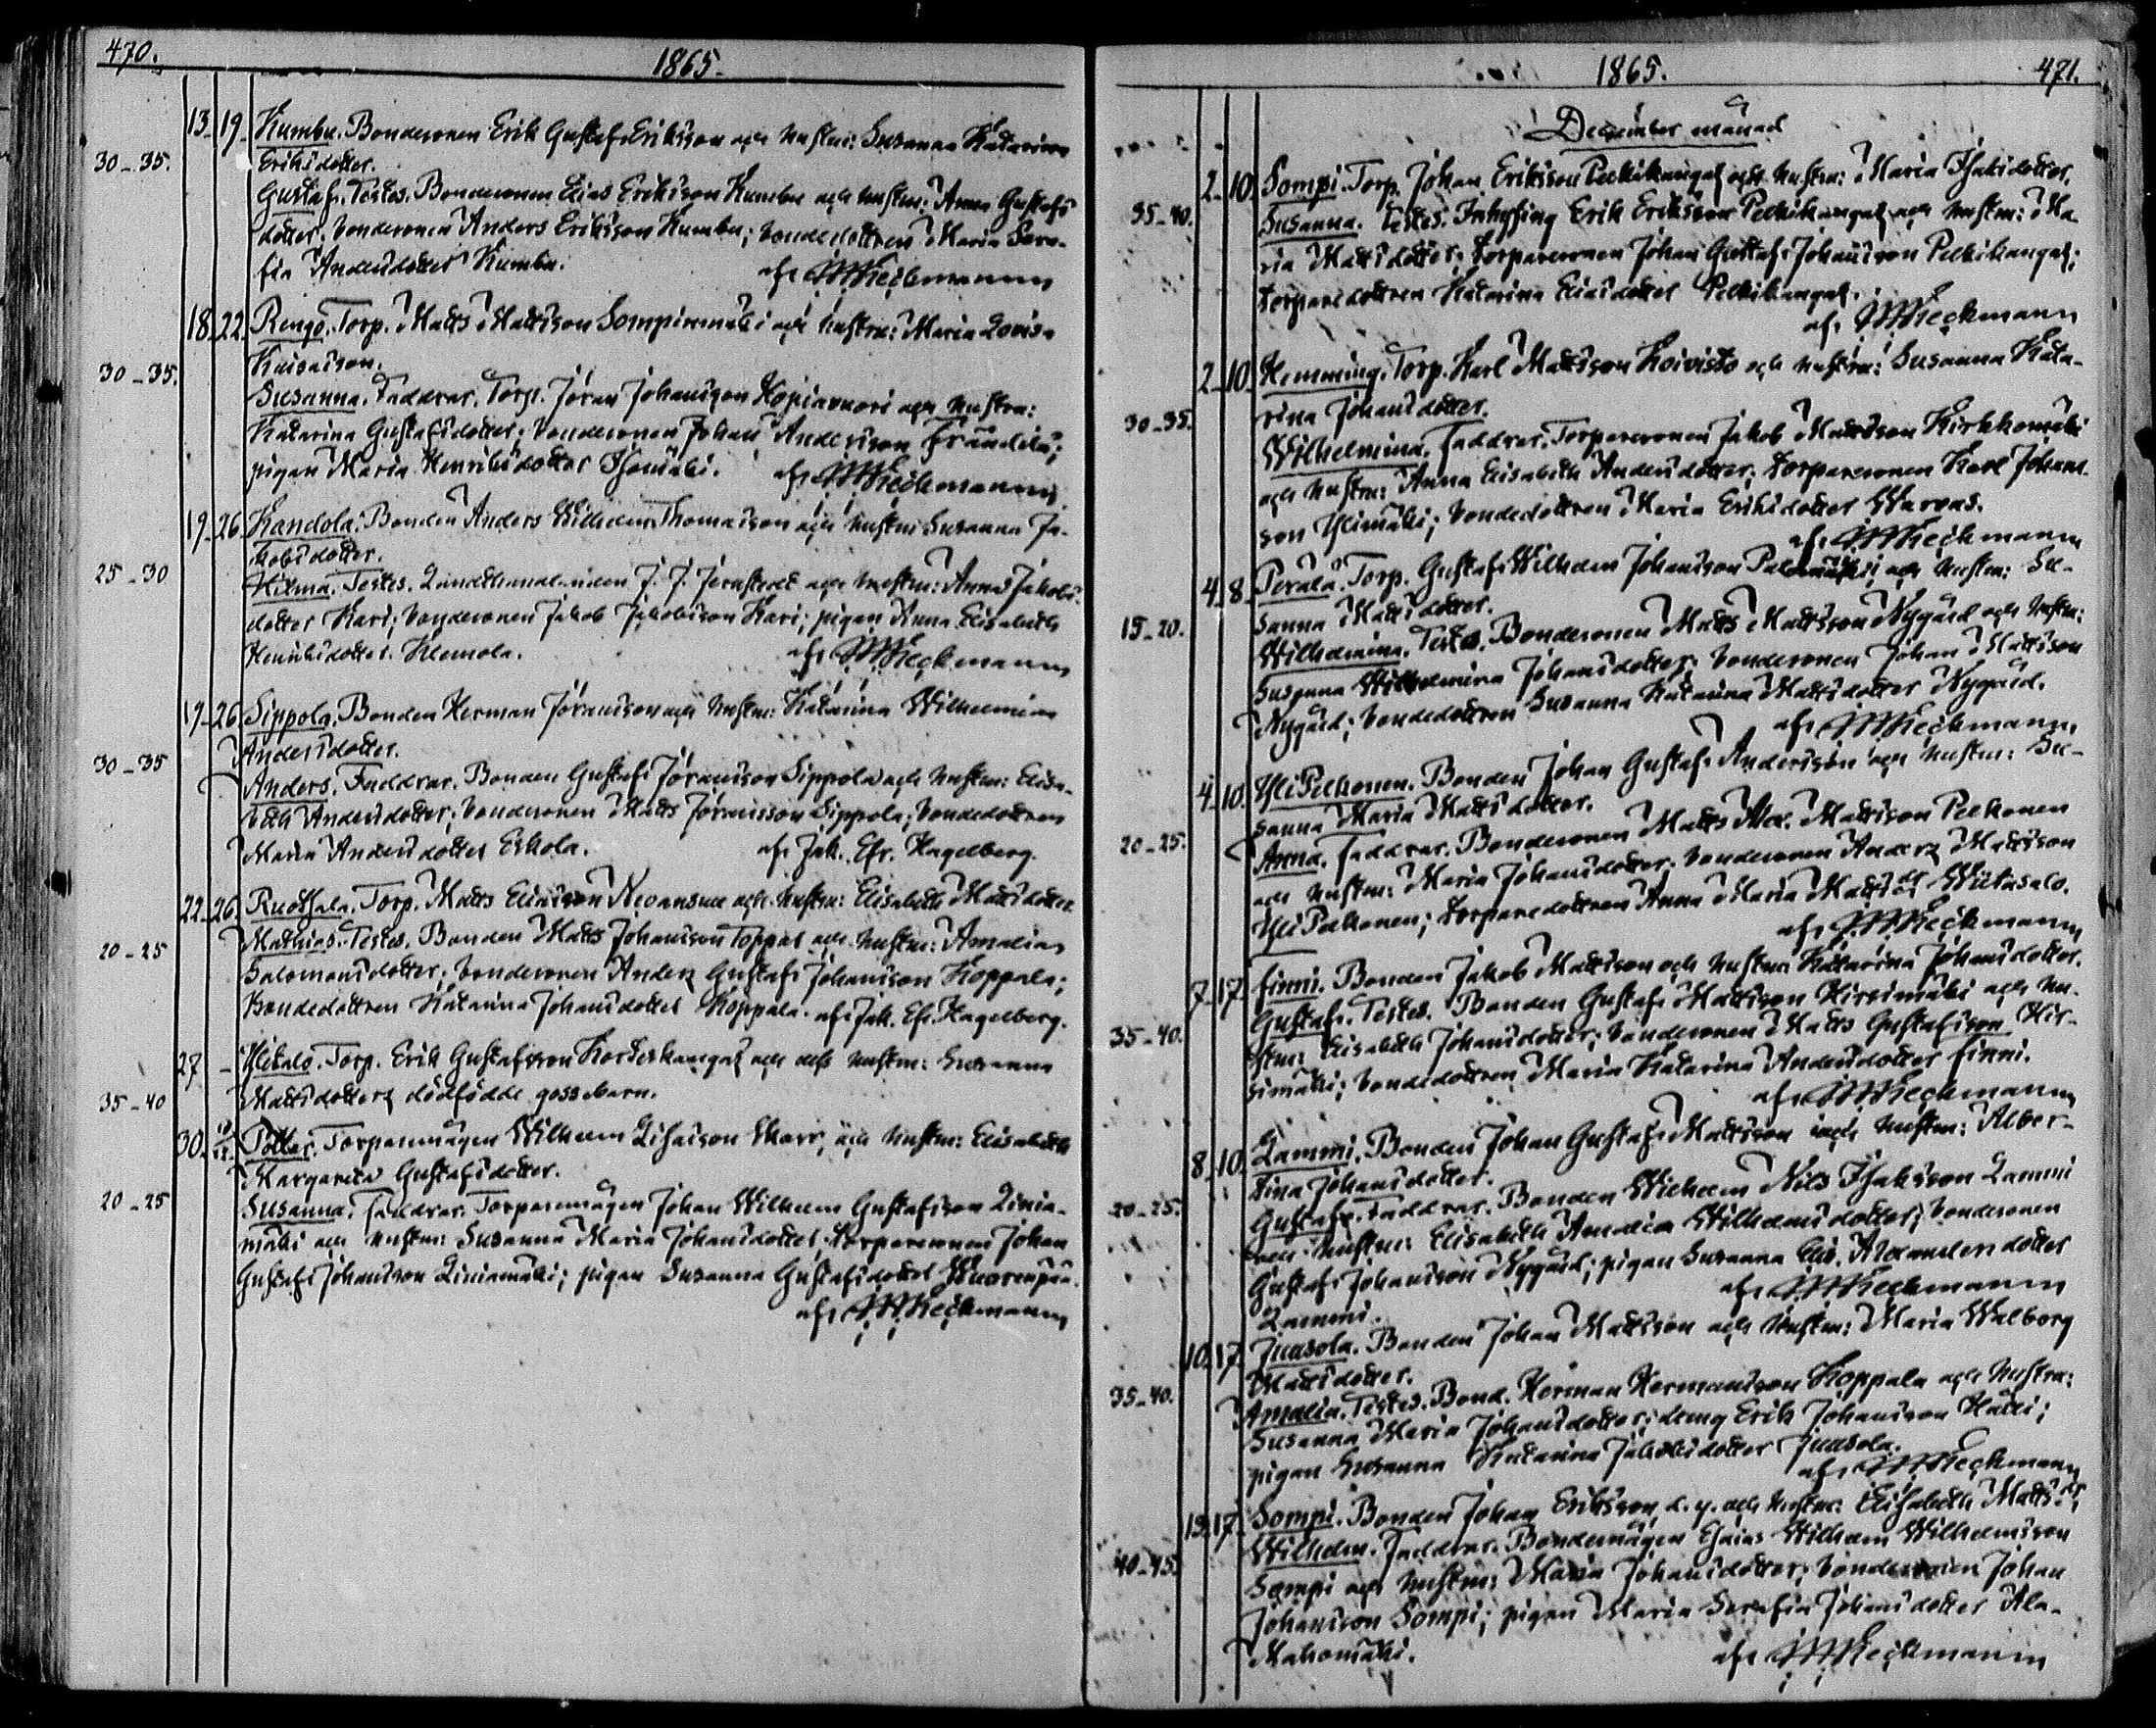 470.
1865.
13. 19. Kumbu. Bondesonen Erik Gustaf Eriksson och hustru: Susanna Katarina
30-35. Eriksdotter.
Gustaf. Testes. Bondesonen Elias Eriksson Kumbu och hustru: Anna Gustafs
dotter; bondesonen Anders Eriksson Kumbu; bondedottren Maria Sera-
fia Andersdotter Kumbu. af
18. 22. Rengo. Torp. Matts Mattsson Sompinmäki och hustru: Maria Lovisa
30-35.
Susanna. Faddrar. Torp. Jöran Johansson Kopiavuori och hustru:
Katarina Gustafsdotter; bondesonen Johan Andersson Frändilä;
pigan Maria Henriksdotter Isomäki. af
19. 26. Kandola. Bonden Anders Wilhelm Thomasson och hustru Susanna Ja-
kobsdotter.
25-30 Hilma. Testes. J. J. och hustru: Anna Jakobs-
dotter Kari; bondesonen Jakob Jakobsson Kari; pigan Anna Elisabeth
Henriksdotter Klemola. af
19. 26. Sippola. Bonden Herman Jöransson och hustru: Katarina Wilhelmina
30-35 Andersdotter.
Anders. Faddrar. Bonden Gustaf Jöransson Sippola och hustru: Elisa-
beth Andersdotter; bondesonen Matts Jöransson Sippola; bondedottren
Maria Andersdotter Eskola. af Jak. Efr. Hagelberg.
22. 26. Ruothala. Torp. Matts Eliasson Nevansuu och hustru: Elisabeth Mattsdotter
20-25 Mathias. Testes. Bonden Matts Johansson Toppar och hustru: Amalia
Salomonsdotter; bondesonen Anders Gustaf Johansson Koppala;
Bondedottren Katarina Johansdotter Koppala. af Jak. Efr. Hagelberg.
27 - Ylitalo. Torp. Erik Gustafsson Korteskangas och dess hustru: Susanna
35-40 Mattsdotters dödfödde gossebarn.
30. Potter. Torparemågen Wilhelm och hustru: Elisabeth
Margareta Gustafsdotter.
20-25 Susanna. Faddrar. Torparemågen Johan Wilhelm Gustafsson Linia-
mäki och hustru: Susanna Maria Johansdotter; torparesonen Johan
Gustaf Johansson Liniamäki; pigan Susanna Gustafsdotter Wuorenpää.
af
1865.
471.
December månad
2. 10. Sompi. Torp. Johan Eriksson Pelkikangas och hustru: Maria Isaksdotter.
35-40. Susanna. Testes. Inhysing Erik Eriksson Pelkikangas och hustru: Ma-
ria Mattsdotter; torparesonen Johan Gustaf Johansson Pelkikangas;
torparedottren Katarina Eliasdotter Pelkikangas.
af
2. 10. Hemming. Torp. Karl Mattsson Koivisto och hustru: Susanna Kata-
30-35. rina Johansdotter.
Wilhelmina. Faddrar. Torparesonen Jakob Mattsson Kirkkomäki
och hustru: Anna Elisabeth Andersdotter; torparesonen Karl Johans-
son Ylimäki; bondedottren Maria Eriksdotter Warvas.
af
4. 8. Perälä. Torp. Gustaf Wilhelm Johansson och hustru: Su-
15-20. sanna Mattsdotter.
Wilhelmina. Testes. Bondesonen Matts Mattsson Nygård och hustru:
Susanna Wilhelmina Johansdotter; bondesonen Johan Mattsson
Nygård; bondedottren Susanna Katarina Mattsdotter Nygård.
af
4. 10. Yli Pelkonen. Bonden Johan Gustaf Andersson och hustru: Su-
20-25. sanna Maria Mattsdotter.
Anna. Faddrar. Bondesonen Matts Alex. Mattsson Pelkonen
och hustru: Maria Johansdotter; bondesonen Anders Mattsson
Yli Pelkonen; torparedottren Anna Maria Mattsdr Wiitasalo.
af
7. 17. Finni. Bonden Jakob Mattsson och hustru: Katarina Johansdotter.
Gustaf. Testes. Bonden Gustaf Mattsson Hirsimäki och hu-
35-40. stru: Elisabeth Johansdotter; bondesonen Matts Gustafsson Hir-
simäki; bondedottren Maria Katarina Andersdotter Finni.
af
8. 10. Lammi. Bonden Johan Gustaf Mattsson och hustru: Alber-
tina Johansdotter.
20-25. Gustaf. Faddrar. Bonden Wilhelm Nils Isaksson Lammi
och hustru: Elisabeth Amalia Wilhelmsdotter; bondesonen
Gustaf Johansson Nygård; pigan Susanna Elis. Alexandersdotter
Lammi. af
10. 17. Juasola. Bonden Johan Mattsson och hustru: Maria Walborg
Mattsdotter.
35-40. Amalia. Testes. Bond. Herman Hermansson Koppala och hustru:
Susanna Maria Johansdotter; dräng Erik Johansson
pigan Susanna Katarina Jakobsdotter Juasola.
af
13. 17. Sompi. Bonden Johan Eriksson d. y. och hustru: Elisabeth Mattsdr
Wilhelm. Faddrar. Bondemågen Esaias Wilhelm Wilhelmsson
40-45. Sompi och hustru: Maria Johansdotter; bondesonen Johan
Johansson Sompi; pigan Maria Serafia Johansdotter Ala-
af